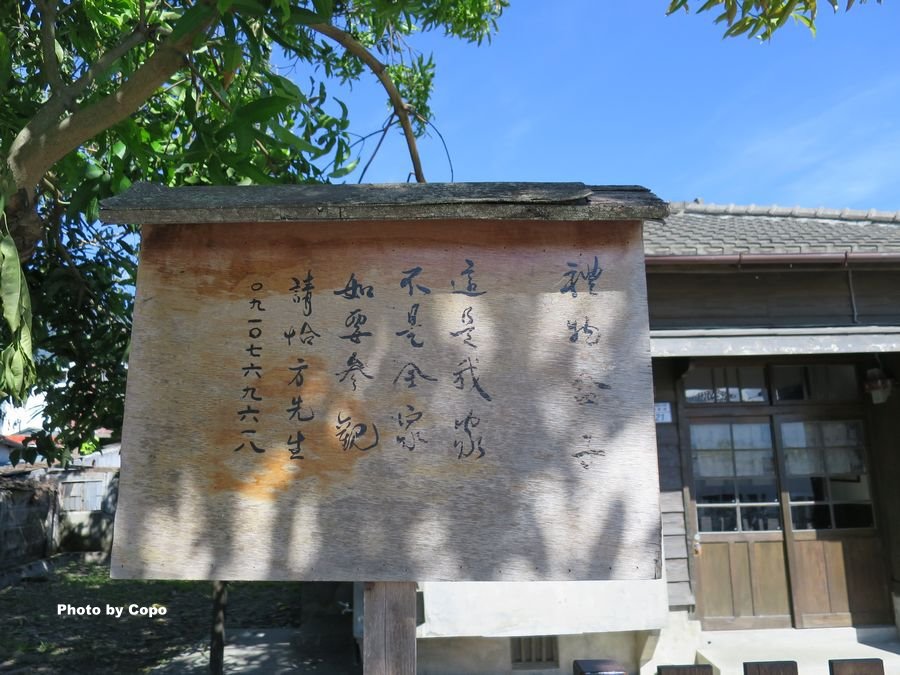 禮物盒子
這是我家
不是全家
如要參觀
請恰方先生
〇九一〇七六六九六一八
Photo by Copo